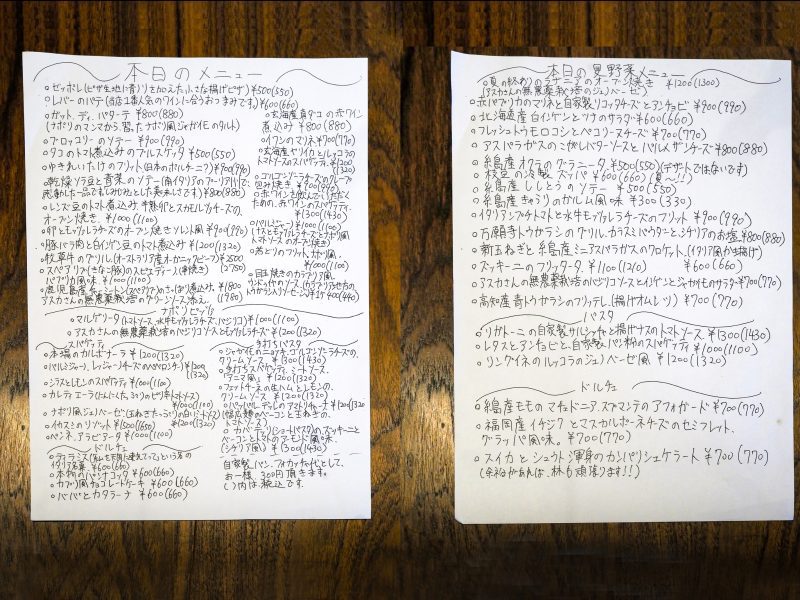 本日のメニュー
ゼッポレ(ピザ生地に青ノリを加えた小さな揚げピザ)¥500(550)
レバーのパテ(当店1番人気のワインに合うおつまみです。)¥600(660)
ガット、ディ、パターテ ¥800(880)
(ナポリのマンマから習ったナポリ風ジャガイモのタルト)
ブロッコリーのソテー ¥900(990)
タコのトマト煮込みのブルスケッタ ¥500(550)
ゆきれいたけのフリット(日本のポルチーニ?)¥900(990)
乾燥ソラ豆と青菜のソテー(南イタリアのプーリア州で
感動した一品です。しみじみとした美味しさです)¥800(880)
レンズ豆のトマト煮込み、半熟卵とスカモルツァチーズの、
オーブン焼き、¥1000(1100)
卵とモッツァレラチーズのオーブン焼きソレント風 ¥900(990)
豚バラ肉と白インゲン豆のトマト煮込み ¥1200(1320)
牧草牛のグリル(オーストラリア産オーガニックビーフ)¥2500
(2750)
スペアリブ(きなこ豚)のスピエディーニ(串焼き)
パプリカ風味、¥1000(1100)
¥1800
(1980)
アスカさんの無農薬栽培のグリーンソース添え
北海道産真ダコの赤ワイン
煮込み ¥800(880)
イワシのマリネ ¥700(770)
北海道産ヤリイカとルッコラの
トマトソースのスパゲティ、¥1200
(1320)
ゴルゴンゾーラチーズの
包み焼き ¥900(990)
赤ワインを飲んでいただく
ための、赤ワインのスパゲティ
¥1300(1430)
パルミジャーノ ¥1000(1100)
(ナスとモッツァレラチーズとナポリ風
トマトソースのオーブン焼き)
¥800(880)
ナポリピッツァ
マルゲリータ(トマトソース、水牛モッツァレラチーズ、バジリコ)¥1000(1100)
アスカさんの無農薬栽培のバジリコソースとモッツァレラチーズ ¥1200(1320)
スパゲティ
本場のカルボナーラ ¥1200(1320)
パルミジャーノ、レッジャーノチーズのペペロンチーノ ¥1200
(1320)
シラスとレモンのスパゲティ ¥1000(1100)
¥1000(1100)
¥1200(1320)
イカスミのリゾット ¥1500(1650)
ペンネ、アラビアータ ¥1000(1100)
手打ちパスタ
ジャガイモのニョッキ、ゴルゴンゾーラチーズの、
クリームソース、¥1300(1430)
手打ちスパゲティ、ミートソース、
¥1200(1320)
フェットチーネの生ハムとレモンの、
クリームソース、¥1200(1320)
パッパルデッレのアマトリチャーナ ¥1200(1320)
(幅広麺のベーコンと玉ねぎの、
トマトソース)
カバテッリ(ショートパスタ)のズッキーニと
ベーコンとトマトのアーモンド風味、
(シチリア風) ¥1300(1430)
ドルチェ
ティラミス(私を天国に連れてって)という名の
イタリア銘菓 ¥600(660)
本物のパンナコッタ ¥600(660)
カプリ風チョコレートケーキ ¥600(660)
ババとカタラーナ ¥600(660)
自家製パン、フォカッチャ代として、
お一人様、300円頂きます。
( )内は、税込です
本日の夏野菜メニュー
¥1200(1300)
(アスカさんの無農薬栽培のジェノベーゼ)
赤パプリカのマリネと自家製リコッタチーズとアンチョビ ¥900(990)
北海道産白インゲンとツナのサラダ ¥600(660)
フレッシュトウモロコシとペコリーノチーズ ¥700(770)
アスパラガスのこがしバターソースとパルメザンチーズ ¥800(880)
糸島産オクラのグラニータ ¥500(550)(デザートではないです)
枝豆の冷製ズッパ ¥600(660)(夏〜!!)
糸島産ししとうのソテー ¥500(550)
糸島産きゅうりのガルム風味 ¥300(330)
イタリアンプチトマトと水牛モッツァレラチーズのフリット ¥900(990)
万願寺トウガラシのグリル、カラスミパウダーとシチリアのお塩 ¥800(880)
新玉ねぎと糸島産ミニアスパラガスのクロケット、(イタリア風かき揚げ)
¥600(660)
ズッキーニのフリッタータ ¥1100(1210)
アスカさんの無農薬栽培のバジリコソースとインゲンとジャガイモのサラダ ¥700(770)
高知産青トウガラシのフリッテレ(揚げオムレツ) ¥700(770)
パスタ
リガトーニの自家製サルシッチャと揚げナスのトマトソース ¥1300(1430)
レタスとアンチョビと自家製パン粉のスパゲティ ¥1000(1100)
リングイネのルッコラのジェノベーゼ風 ¥1200(1320)
ドルチェ
糸島産モモのマチェドニア、スプマンテのアフォガード ¥700(770)
福岡産イチジクとマスカルポーネチーズのセミフレット、
グラッパ風味、¥700(770)
スイカとシェフト渾身のカンパリシェケラート ¥700(770)
(余裕があれば、林も頑張ります!!)